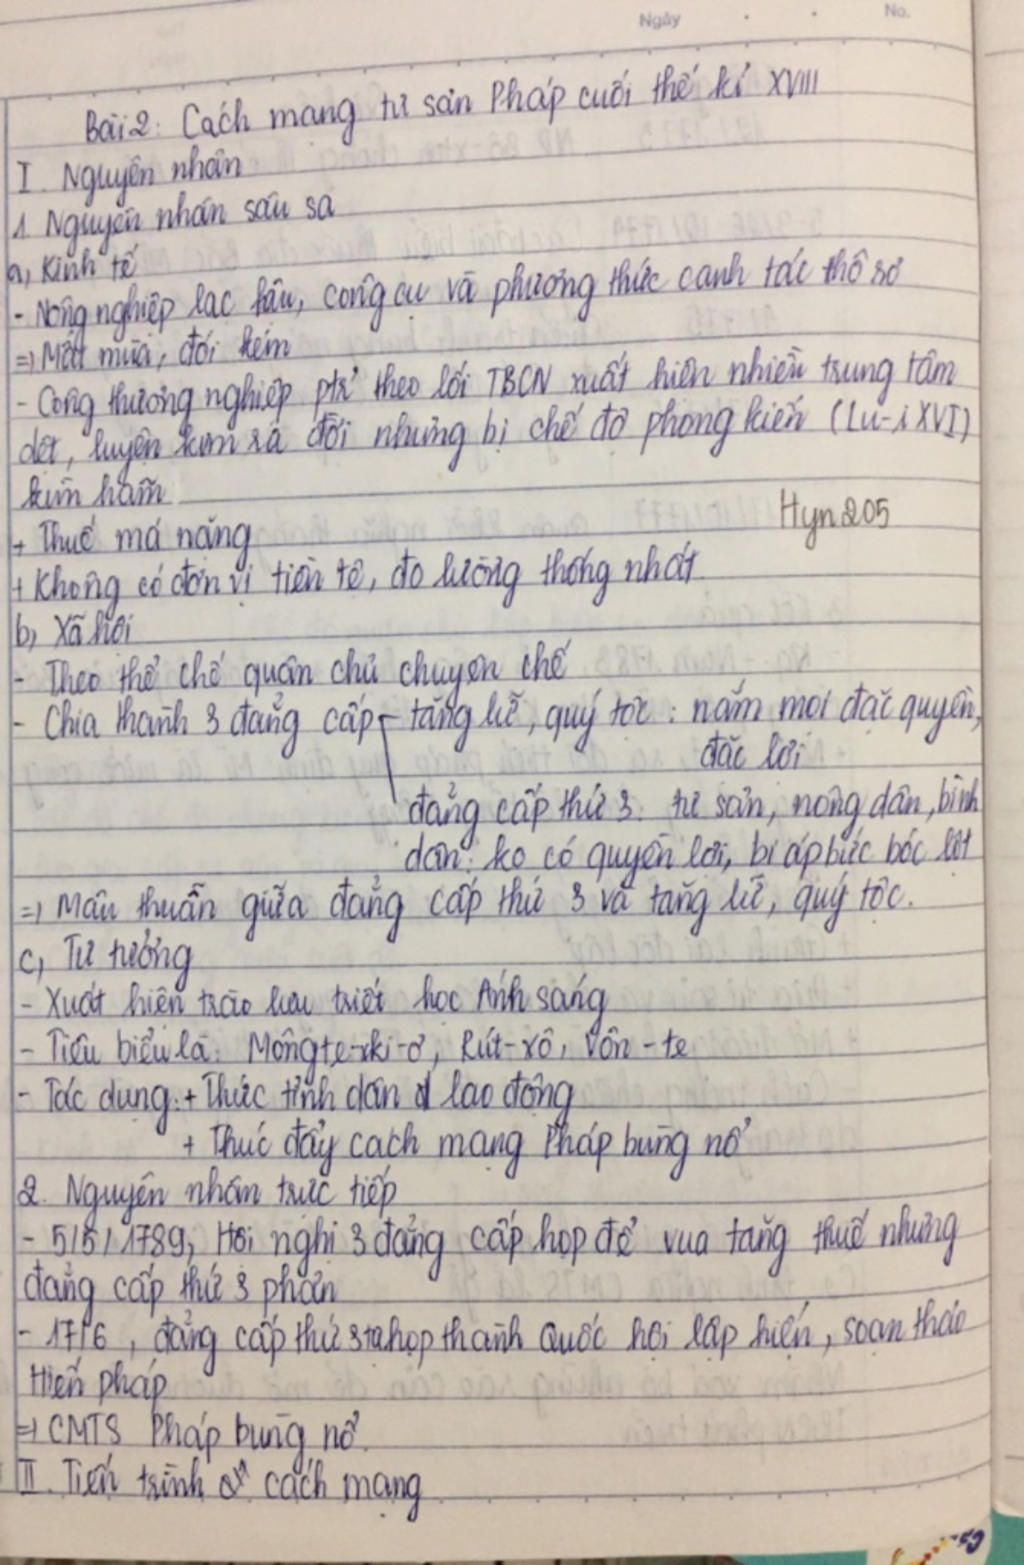 Ngày
No.
Bài 2: Cách mạng tư sản Pháp cuối thế kỉ XVIII
I. Nguyên nhân
1. Nguyên nhân sâu sa
a, Kinh tế
- Nông nghiệp lạc hậu, công cụ và phương thức canh tác thô sơ
=> Mất mùa, đói kém
- Công thương nghiệp ptr theo lối TBCN xuất hiện nhiều trung tâm
dệt, luyện kim ra đời nhưng bị chế độ phong kiến (Lu-i XVI)
kìm hãm
Hyn205
+ Thuế má nặng
+ Không có đơn vị tiền tệ, đo lường thống nhất
b, Xã hội
- Theo thể chế quân chủ chuyên chế
- Chia thành 3 đẳng cấp tăng lữ, quý tộc: nắm mọi đặc quyền,
đặc lợi
đẳng cấp thứ 3: tư sản, nông dân, bình
dân: ko có quyền lợi, bị áp bức bóc lột
=> Mâu thuẫn giữa đẳng cấp thứ 3 và tăng lữ, quý tộc.
c, Tư tưởng
- Xuất hiện trào lưu triết học Ánh sáng
- Tiêu biểu là: Môngte-xki-ơ, Rút-xô, Vôn-te
- Tác dụng: + Thức tỉnh dân lao động
+ Thúc đẩy cách mạng Pháp bùng nổ
2. Nguyên nhân trực tiếp
- 5/5/1789, Hội nghị 3 đẳng cấp họp để vua tăng thuế nhưng
đẳng cấp thứ 3 phản
- 17/6, đẳng cấp thứ 3 tự họp thành Quốc hội lập hiến, soạn thảo
Hiến pháp
=> CMTS Pháp bùng nổ.
II. Tiến trình cách mạng